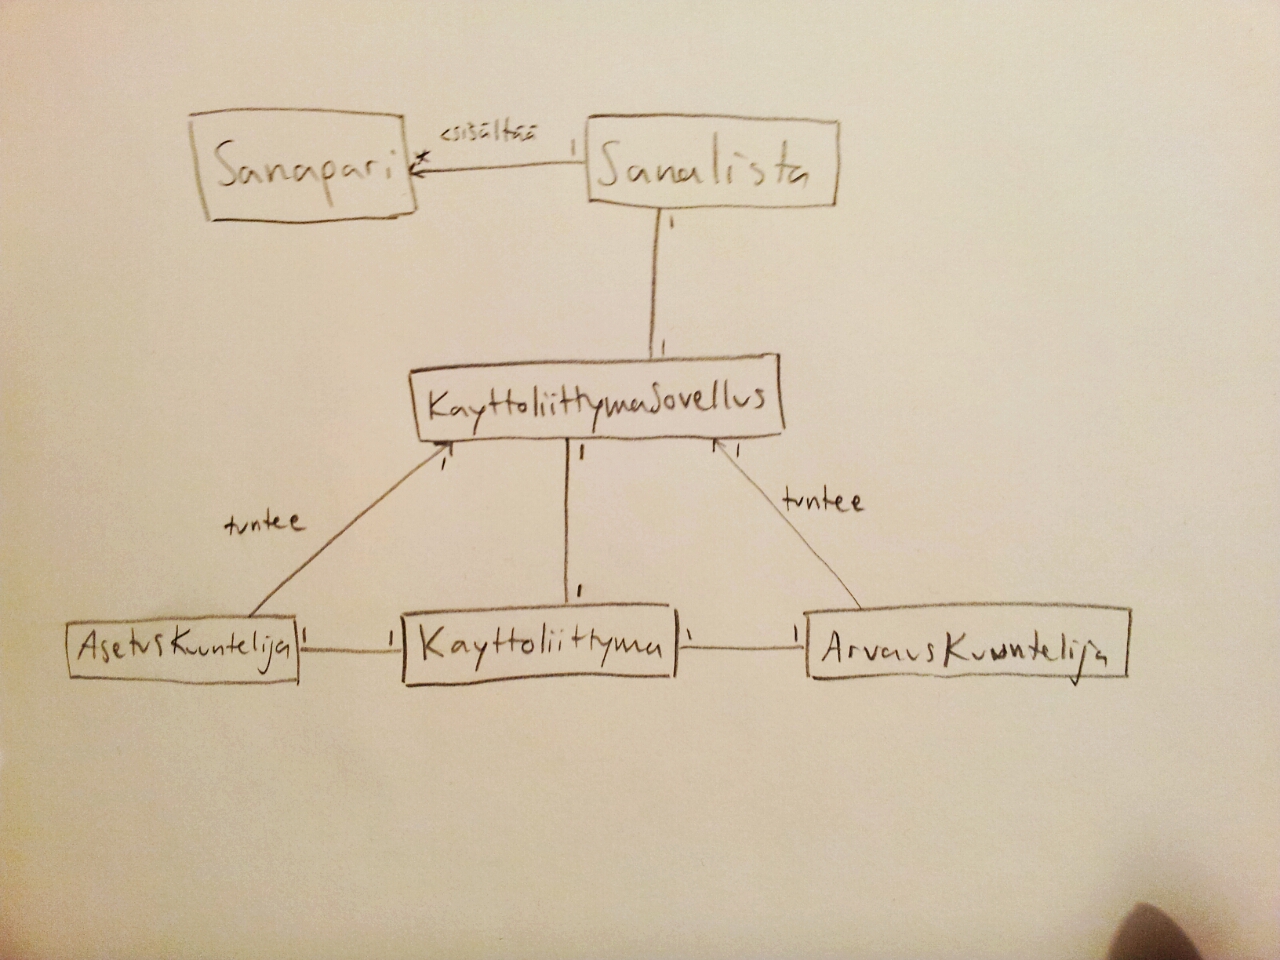 <sisältää
Sanapari * 1 Sanalista
1
1
KayttoliittymaSovellus
1 1 1
tuntee tuntee
1
AsetusKuuntelija 1 1 Kayttoliittyma 1 1 ArvausKuuntelija